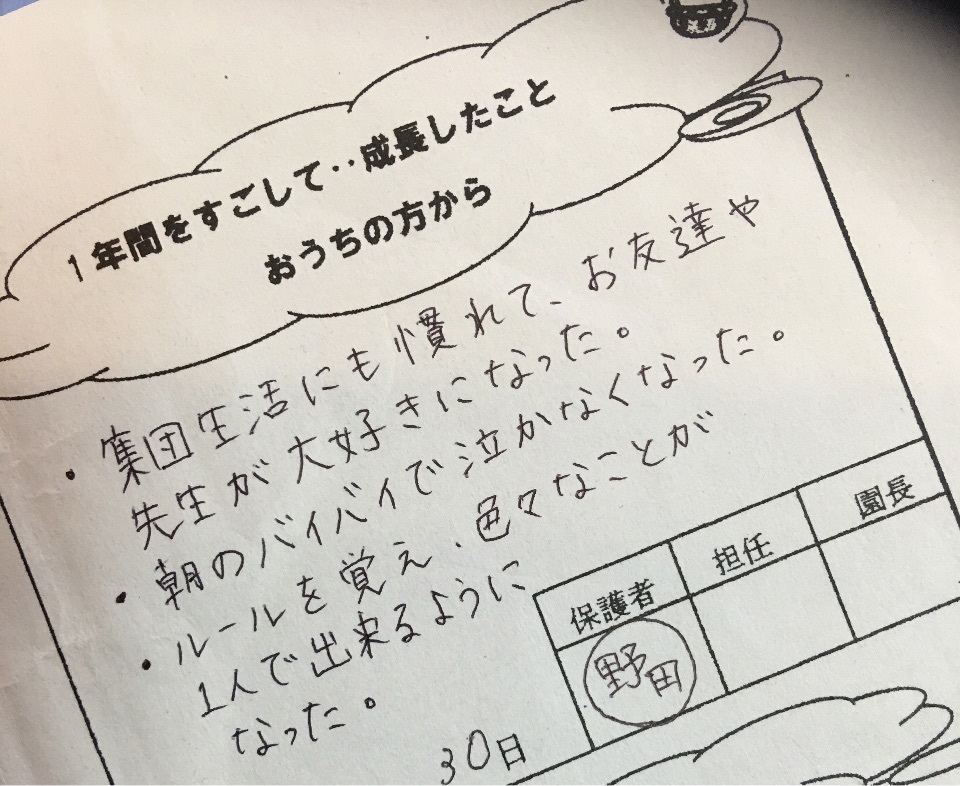 1年間をすごして‥成長したこと
おうちの方から
・集団生活にも慣れて、お友達や
先生が大好きになった。
・朝のバイバイで泣かなくなった。
・ルールを覚え、色々なことが
1人で出来るように
なった。
保護者 担任 園長
野田
30日